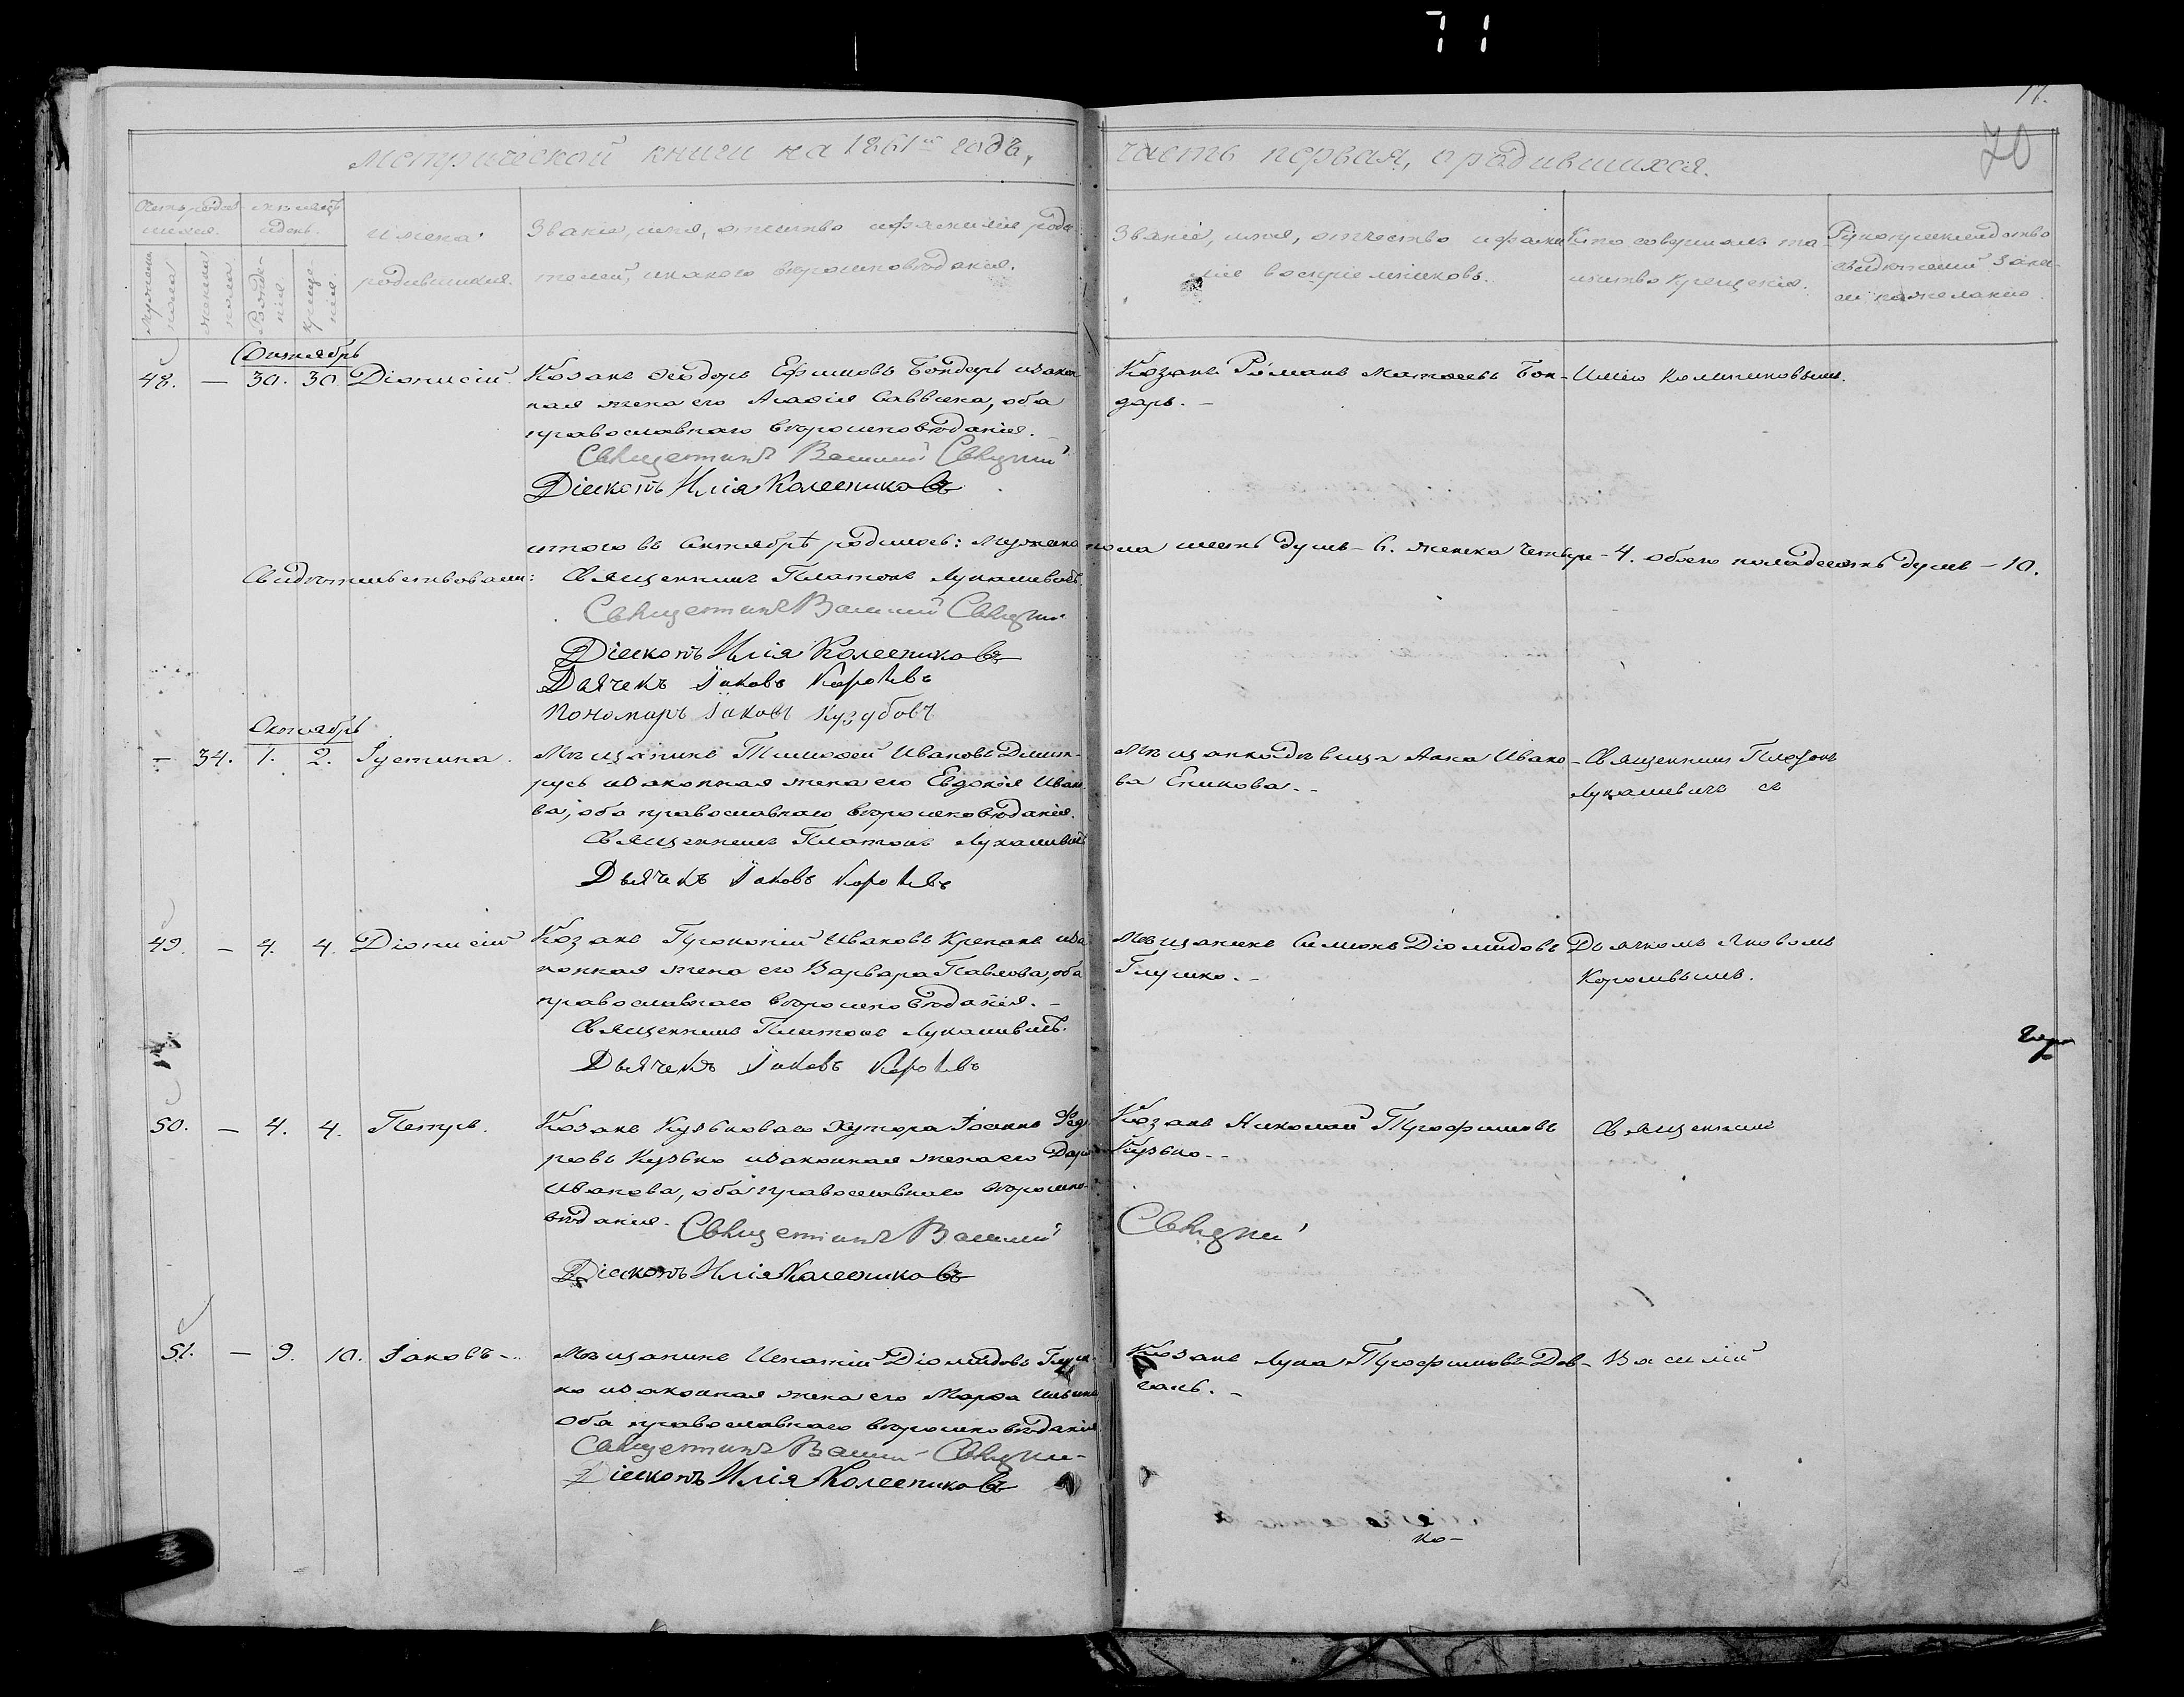 71
17.
70
Метрической книги на 1861й годъ,
часть первая, о родившихся.
Счетъ родив-
шихся.
мѣсяцъ
и день.
Мужеска
пола
женска
пола
Рожде-
нія.
креще-
нія.
имена
родившихся.
Званіе, имя, отчество и фамилія роди-
телей, и какого вѣроисповѣданія.
Званіе, имя, отчество и фами-
лія воспріемниковъ.
Кто совершалъ та-
инство крещенія.
Рукоприкладство
свидѣтелей запи-
си по желанію
Сентябрь
48. — 30. 30. Діонисій.
Козакъ Ѳеодоръ Ефимовъ Бондарь и закон-
ная жена его Агафія Саввина, оба
православнаго вѣроисповѣданія.
Священникъ Василій
Діаконъ Илія Колесниковъ
Козакъ Романъ Матѳеевъ Бон-
дарь. —
Иліею Колесниковымъ.
итого въ Сентябрѣ родилось: мужеска пола шесть душъ - 6. женска четыре - 4. обоего пола десять душъ - 10.
Свидѣтельствовали: Священникъ Платонъ Лукашевичъ.
Священникъ Василій
Діаконъ Илія Колесниковъ
Дьячекъ Іаковъ
Пономарь Іаковъ Кузубовъ
Октябрь
— 34. 1. 2. Іустина.
Мѣщанинъ Тимоѳей Ивановъ
и законная жена его Евдокія Ивано-
ва, оба православнаго вѣроисповѣданія.
Священникъ Платонъ Лукашевичъ
Дьячекъ Іаковъ
Мѣщанка дѣвица Анна Ивано-
ва Еникова. -
Священникъ Платонъ
Лукашевичъ съ
49. — 4. 4. Діонисій
Козакъ Прокопій Ивановъ и за-
конная жена его Варвара Павлова, оба
православнаго вѣроисповѣданія. —
Священникъ Платонъ Лукашевичъ.
Дьячекъ Іаковъ
Мѣщанинъ Симеонъ Діомидовъ
Глушко. -
Дьячкомъ Яковомъ
50. — 4. 4. Петръ.
Козакъ Кузьковаго хутора Іоаннъ Ѳедо-
ровъ Кузько и законная жена его Дарія
Иванова, оба православнаго вѣроиспо-
вѣданія. Священникъ Василій
Діаконъ Илія Колесниковъ
Козакъ Николай Трофимовъ
Кузько. -
Священникъ
51. — 9. 10. Іаковъ -
Мѣщанинъ Игнатій Діомидовъ Глуш-
ко и законная жена его Марѳа
оба православнаго вѣроисповѣданія
Священникъ Василій
Діаконъ Илія Колесниковъ
Козакъ Лука Трофимовъ Дов-
гань. -
Василій
ко-